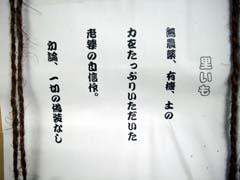 里いも
無農薬、有機、土の
力をたっぷりいただいた
老婆の自信作。
勿論、一切の偽装なし